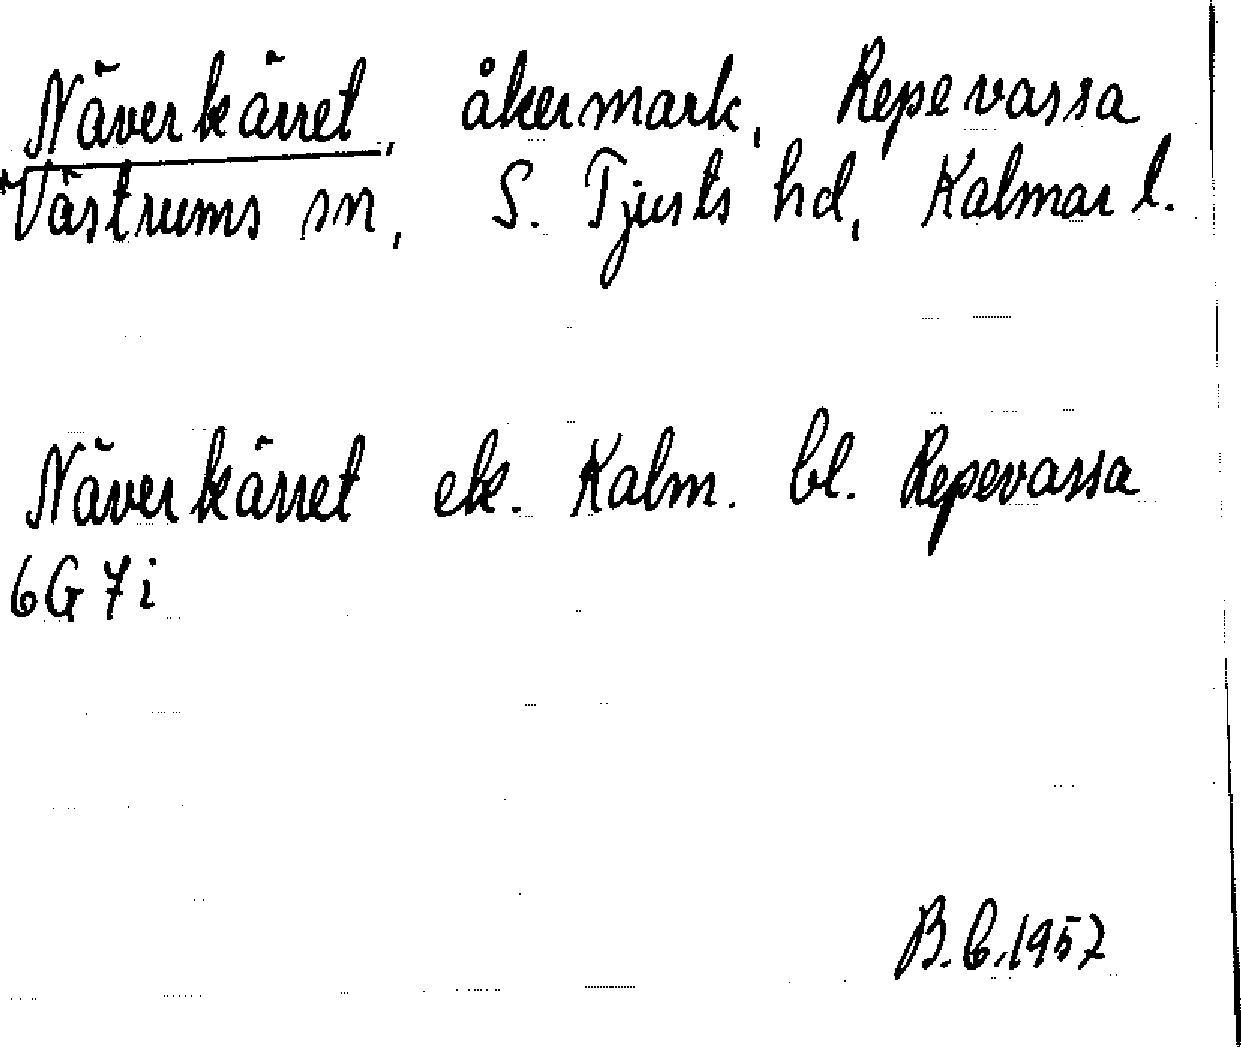 Näverkärret, åkermark, Repevassa
Västrums sn, S. Tjusts hd, Kalmar l.
Näverkärret ek. Kalm. bl. Repevassa
6G7i
B.b.1957